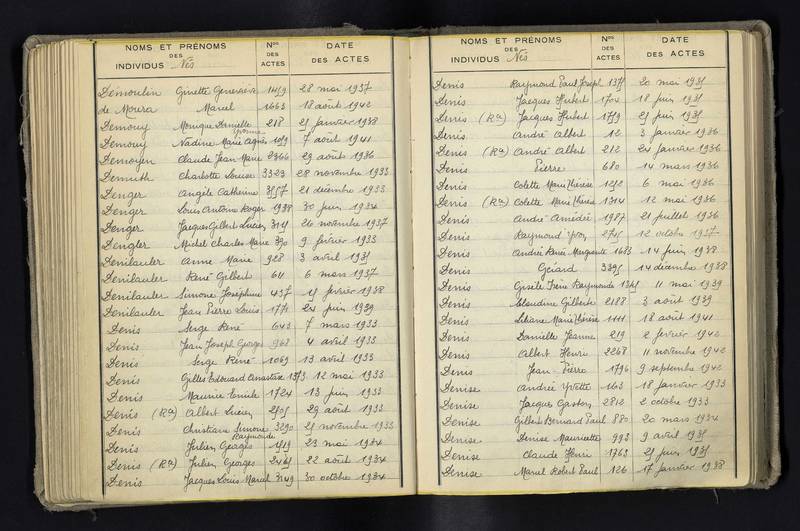 NOMS ET PRÉNOMS
DES
INDIVIDUS Nés
Nos
DES
ACTES
DATE
DES ACTES
Demoulin Ginette Geneviève 1459 28 mai 1937
de Moura Marcel 1663 18 août 1942
Demouy Monique Armelle 218 25 janvier 1938
Yvonne
Demouy Nadine Marie Agnès 1059 7 août 1941
Demoyen Claude Jean Marie 2366 29 août 1936
Demuth Charlotte Louise 3323 28 novembre 1933
Denger Angèle Catherine 3557 21 décembre 1933
Denger Louis Antoine Roger 1938 30 juin 1934
Denger Jacques Gilbert Lucien 3159 26 novembre 1937
Dengler Michel Charles Marie 390 9 février 1933
Denilauler Anne Marie 928 3 avril 1935
Denilauler René Gilbert 611 6 mars 1937
Denilauler Simone Joséphine 437 15 février 1938
Denilauler Jean Pierre Louis 1771 24 juin 1939
Denis Serge René 643 7 mars 1933
Denis Jean Joseph Georges 968 4 avril 1933
Denis Serge René 1069 13 avril 1933
Denis Gilles Edouard Anastase 1373 12 mai 1933
Denis Maurice Emile 1724 13 juin 1933
Denis (Ra) Albert Lucien 2505 29 août 1933
Denis Christiane Simone 3290 25 novembre 1933
Raymonde
Denis Julien Georges 1519 23 mai 1934
Denis (Ra) Julien Georges 2465 22 août 1934
Denis Jacques Louis Marcel 3149 30 octobre 1934
NOMS ET PRÉNOMS
DES
INDIVIDUS Nés
Nos
DES
ACTES
DATE
DES ACTES
Denis Raymond Paul Joseph 1375 20 mai 1935
Denis Jacques Hubert 1704 18 juin 1935
Denis (Ra) Jacques Hubert 1759 25 juin 1935
Denis André Albert 12 3 janvier 1936
Denis (Ra) André Albert 212 24 janvier 1936
Denis Pierre 680 14 mars 1936
Denis Colette Marie Thérèse 1252 6 mai 1936
Denis (Ra) Colette Marie Thérèse 1314 12 mai 1936
Denis André Amédée 1987 21 juillet 1936
Denis Raymond Yvon 2745 12 octobre 1937
Denis Andrée Renée Marguerite 1683 14 juin 1938
Denis Gérard 3395 14 décembre 1938
Denis Gisèle Irène Raymonde 1345 11 mai 1939
Denis Claudine Gilberte 2188 3 août 1939
Denis Liliane Marie Thérèse 1111 18 août 1941
Denis Danielle Jeanne 219 2 février 1942
Denis Albert Henri 2268 11 novembre 1942
Denis Jean Pierre 1796 9 septembre 1942
Denise Andrée Yvette 163 18 janvier 1933
Denise Jacques Gaston 2812 2 octobre 1933
Denise Gilbert Bernard Paul 880 20 mars 1934
Denise Denise Mauricette 993 9 avril 1935
Denise Claude Henri 1763 25 juin 1935
Denise Marcel Robert Paul 126 17 janvier 1938